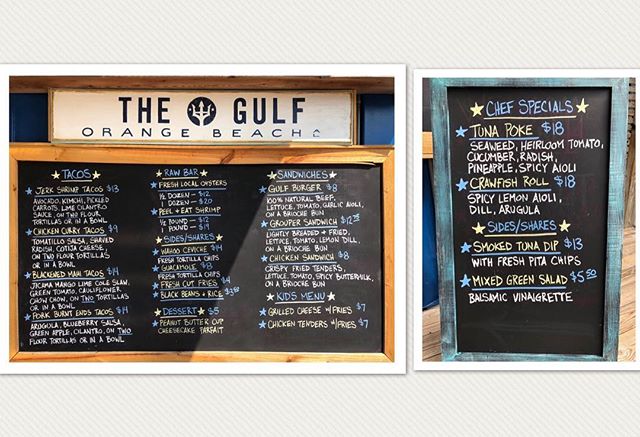 THE GULF
ORANGE BEACH
TACOS
JERK SHRIMP TACOS $13
AVOCADO, KIMCHI, PICKLED
CARROTS, LIME CILANTRO
SAUCE, ON TWO FLOUR
TORTILLAS OR IN A BOWL
CHICKEN CURRY TACOS $9
TOMATILLO SALSA, SHAVED
RADISH, COTIJA CHEESE,
ON TWO FLOUR TORTILLAS
OR IN A BOWL
BLACKENED MAHI TACOS $14
JICAMA MANGO LIME COLE SLAW,
GREEN TOMATO, CAULIFLOWER,
CHOW CHOW, ON TWO TORTILLAS
OR IN A BOWL
PORK BURNT ENDS TACOS $14
ARUGULA, BLUEBERRY SALSA,
GREEN APPLE, CILANTRO, ON TWO
FLOUR TORTILLAS OR IN A BOWL
RAW BAR
FRESH LOCAL OYSTERS
½ DOZEN - $12
1 DOZEN - $20
PEEL & EAT SHRIMP
½ POUND - $12
1 POUND - $19
SIDES/SHARES
WAHOO CEVICHE $14
FRESH TORTILLA CHIPS
GUACAMOLE $13
FRESH TORTILLA CHIPS
FRESH CUT FRIES $4
BLACK BEANS & RICE
DESSERT $5
PEANUT BUTTER CUP
CHEESECAKE PARFAIT
SANDWICHES
GULF BURGER $8
100% NATURAL BEEF,
LETTUCE, TOMATO, GARLIC AIOLI,
ON A BRIOCHE BUN
GROUPER SANDWICH
LIGHTLY BREADED & FRIED,
LETTUCE, TOMATO, LEMON DILL,
ON A BRIOCHE BUN
CHICKEN SANDWICH $8
CRISPY FRIED TENDERS,
LETTUCE, TOMATO, SPICY BUTTERMILK,
ON A BRIOCHE BUN
KIDS MENU
GRILLED CHEESE W/FRIES $7
CHICKEN TENDERS W/FRIES $7
CHEF SPECIALS
TUNA POKE $18
SEAWEED, HEIRLOOM TOMATO,
CUCUMBER, RADISH,
PINEAPPLE, SPICY AIOLI
CRAWFISH ROLL $18
SPICY LEMON AIOLI,
DILL, ARUGULA
SIDES/SHARES
SMOKED TUNA DIP $13
WITH FRESH PITA CHIPS
MIXED GREEN SALAD $5.50
BALSAMIC VINAIGRETTE